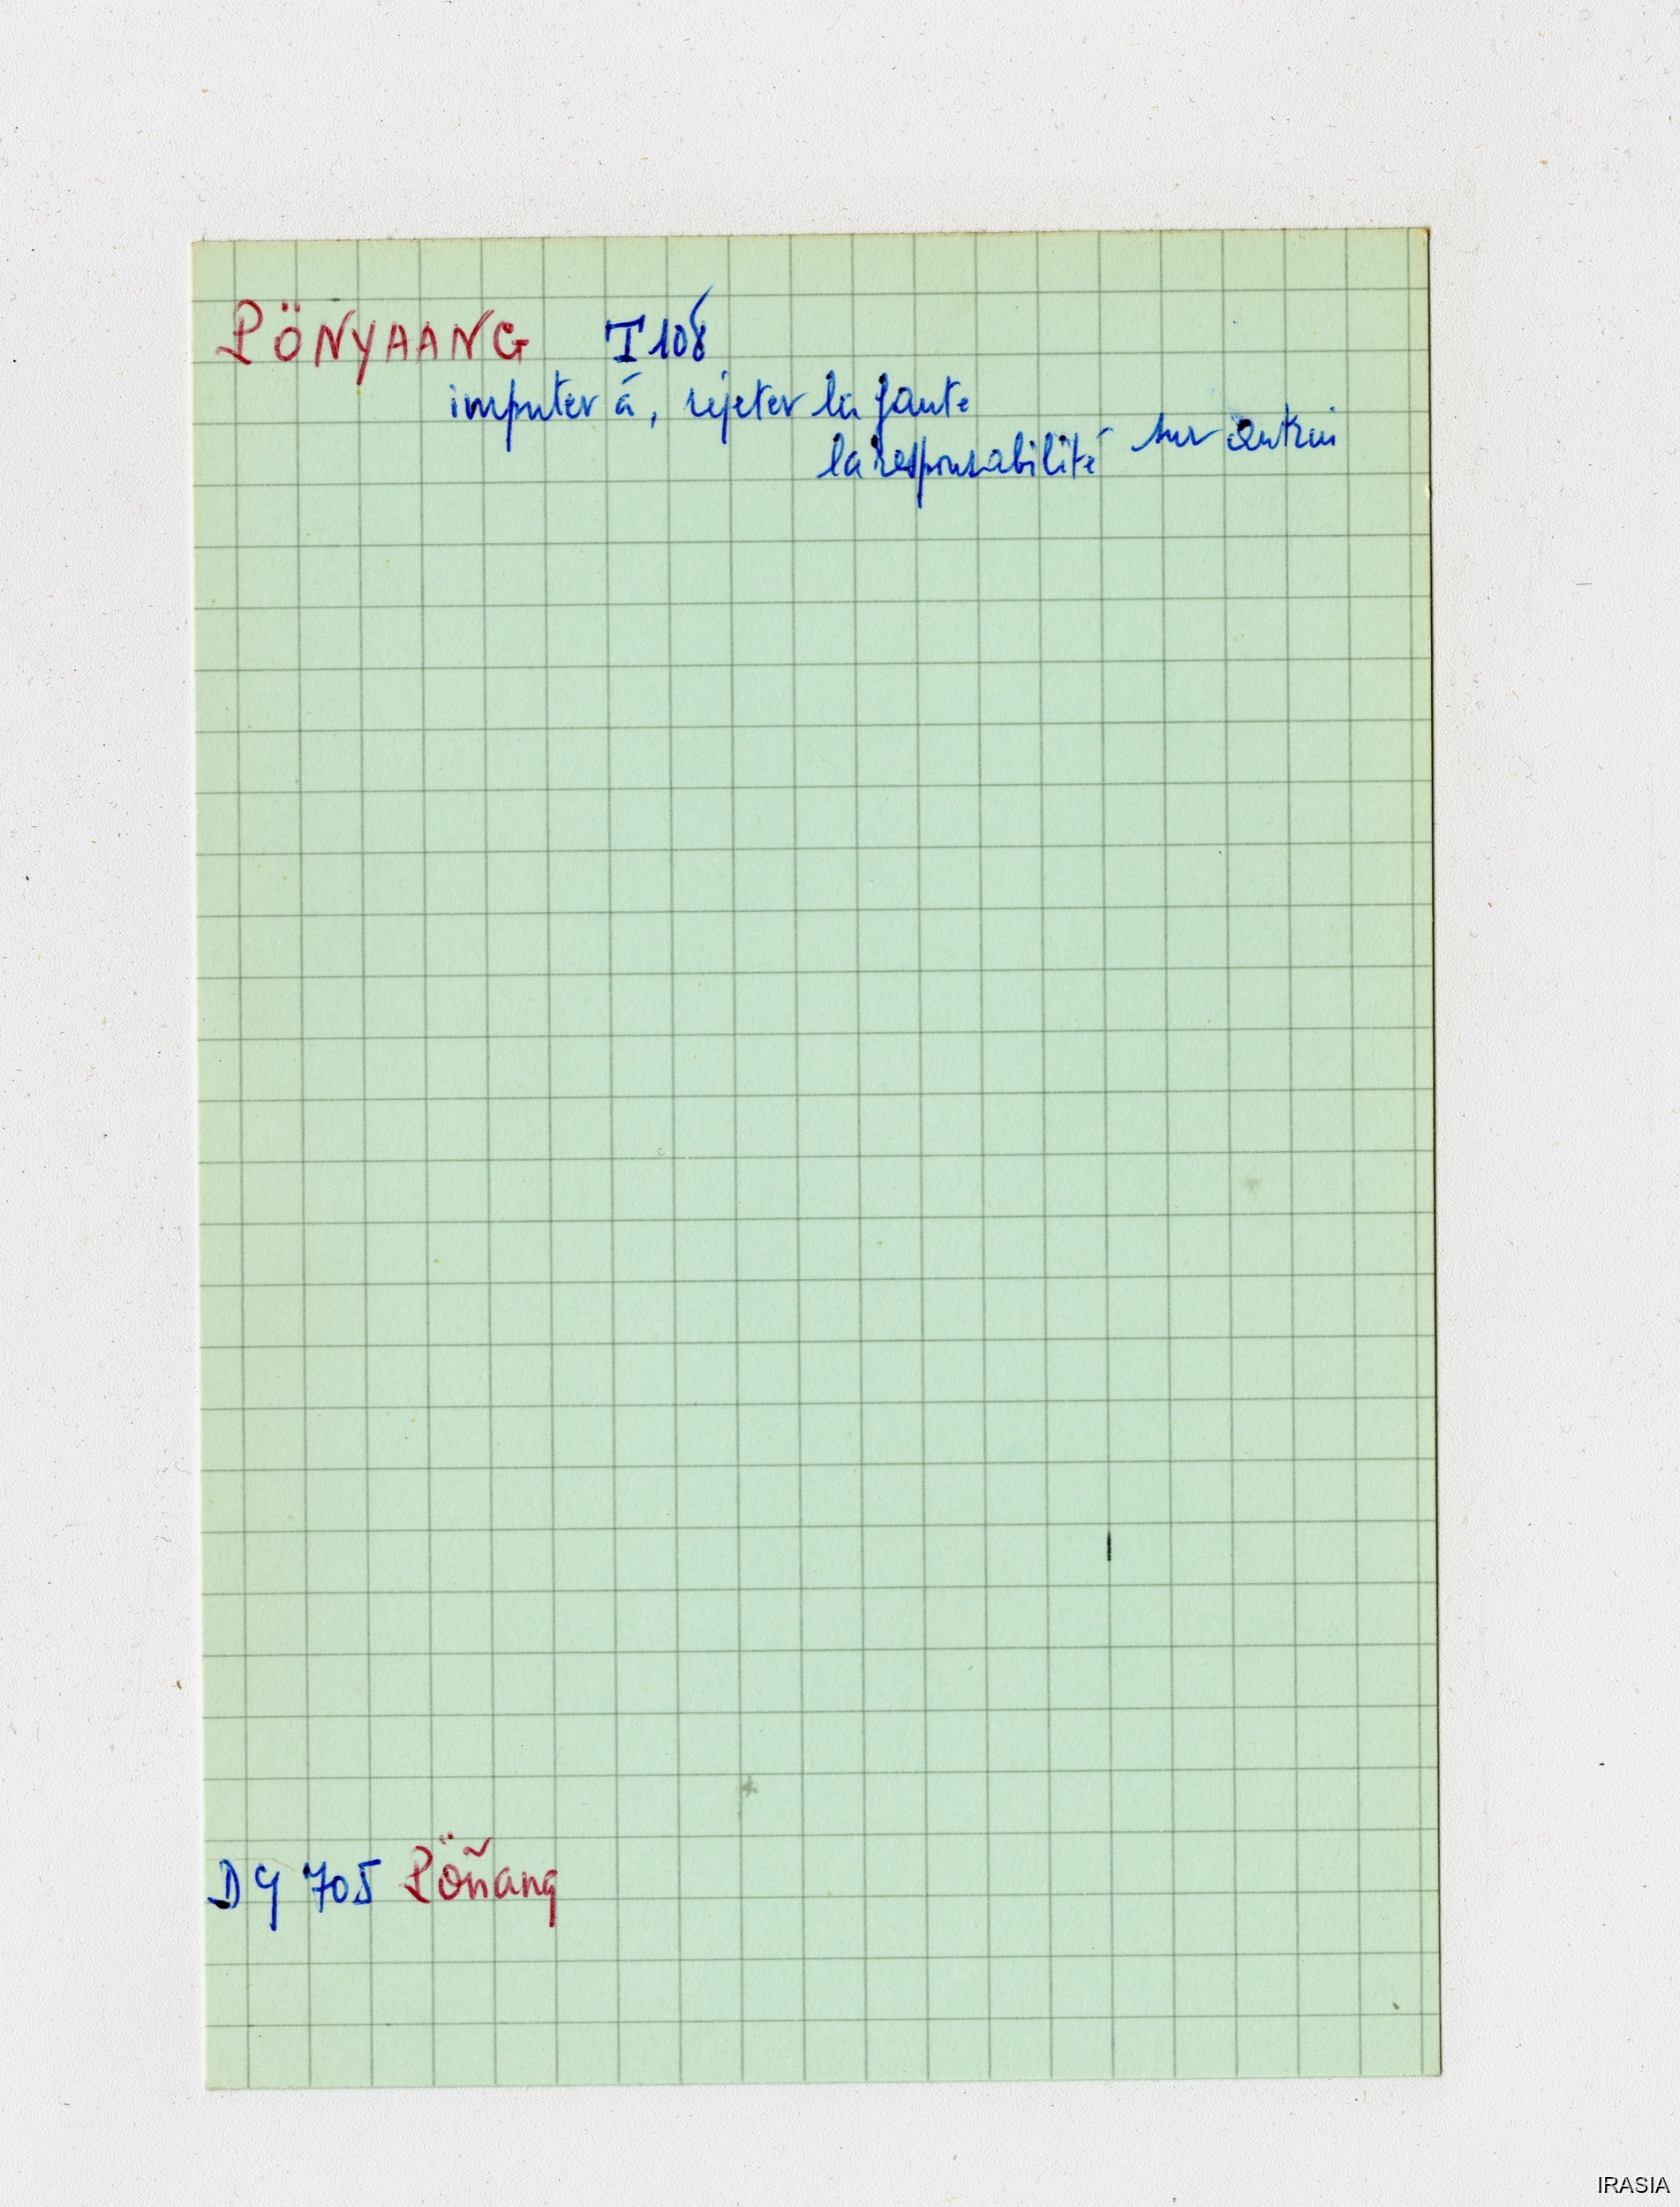 PÖNYAANG I 108
imputer à, rejeter la faute
la responsabilité sur autrui
DY 705 Pöñang
IRASIA